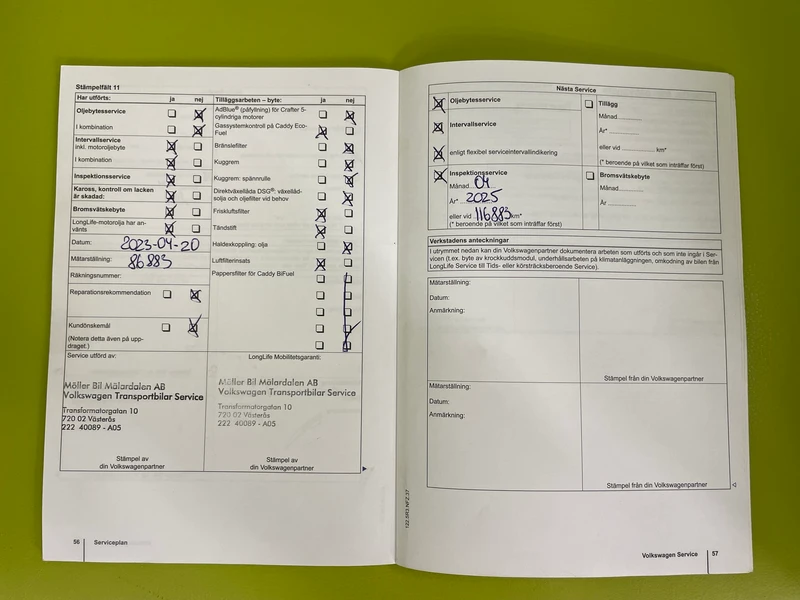 Stämpelfält 11
Har utförts: ja nej
Oljebytesservice
I kombination
Intervallservice
inkl. motoroljebyte
I kombination
Inspektionsservice
Kaross, kontroll om lacken
är skadad:
Bromsvätskebyte
LongLife-motorolja har an-
vänts
Datum: 2023-04-20
Mätarställning: 86883
Räkningsnummer:
Reparationsrekommendation
Kundönskemål
(Notera detta även på upp-
draget.)
Tilläggsarbeten – byte: ja nej
AdBlue® (påfyllning) för Crafter 5-
cylindriga motorer
Gassystemkontroll på Caddy Eco-
Fuel
Bränslefilter
Kuggrem
Kuggrem: spännrulle
Direktväxellåda DSG®: växellåd-
solja och oljefilter vid behov
Friskluftsfilter
Tändstift
Haldexkoppling: olja
Luftfilterinsats
Pappersfilter för Caddy BiFuel
Service utförd av:
Möller Bil Mälardalen AB
Volkswagen Transportbilar Service
Transformatorgatan 10
720 02 Västerås
222 40089 - A05
Stämpel av
din Volkswagenpartner
LongLife Mobilitetsgaranti:
Möller Bil Mälardalen AB
Volkswagen Transportbilar Service
Transformatorgatan 10
720 02 Västerås
222 40089 - A05
Stämpel av
din Volkswagenpartner
56 Serviceplan
Nästa Service
Oljebytesservice
Intervallservice
enligt flexibel serviceintervallindikering
Inspektionsservice
Månad 04
År* 2025
eller vid 116883 km*
(* beroende på vilket som inträffar först)
Tillägg
Månad
År*
eller vid km*
(* beroende på vilket som inträffar först)
Bromsvätskebyte
Månad
År
Verkstadens anteckningar
I utrymmet nedan kan din Volkswagenpartner dokumentera arbeten som utförts och som inte ingår i Ser-
vicen (t.ex. byte av krockkuddsmodul, underhållsarbeten på klimatanläggningen, omkodning av bilen från
LongLife Service till Tids- eller körsträcksberoende Service).
Mätarställning:
Datum:
Anmärkning:
Stämpel från din Volkswagenpartner
Mätarställning:
Datum:
Anmärkning:
Stämpel från din Volkswagenpartner
122.5R3.NFZ.37
Volkswagen Service 57